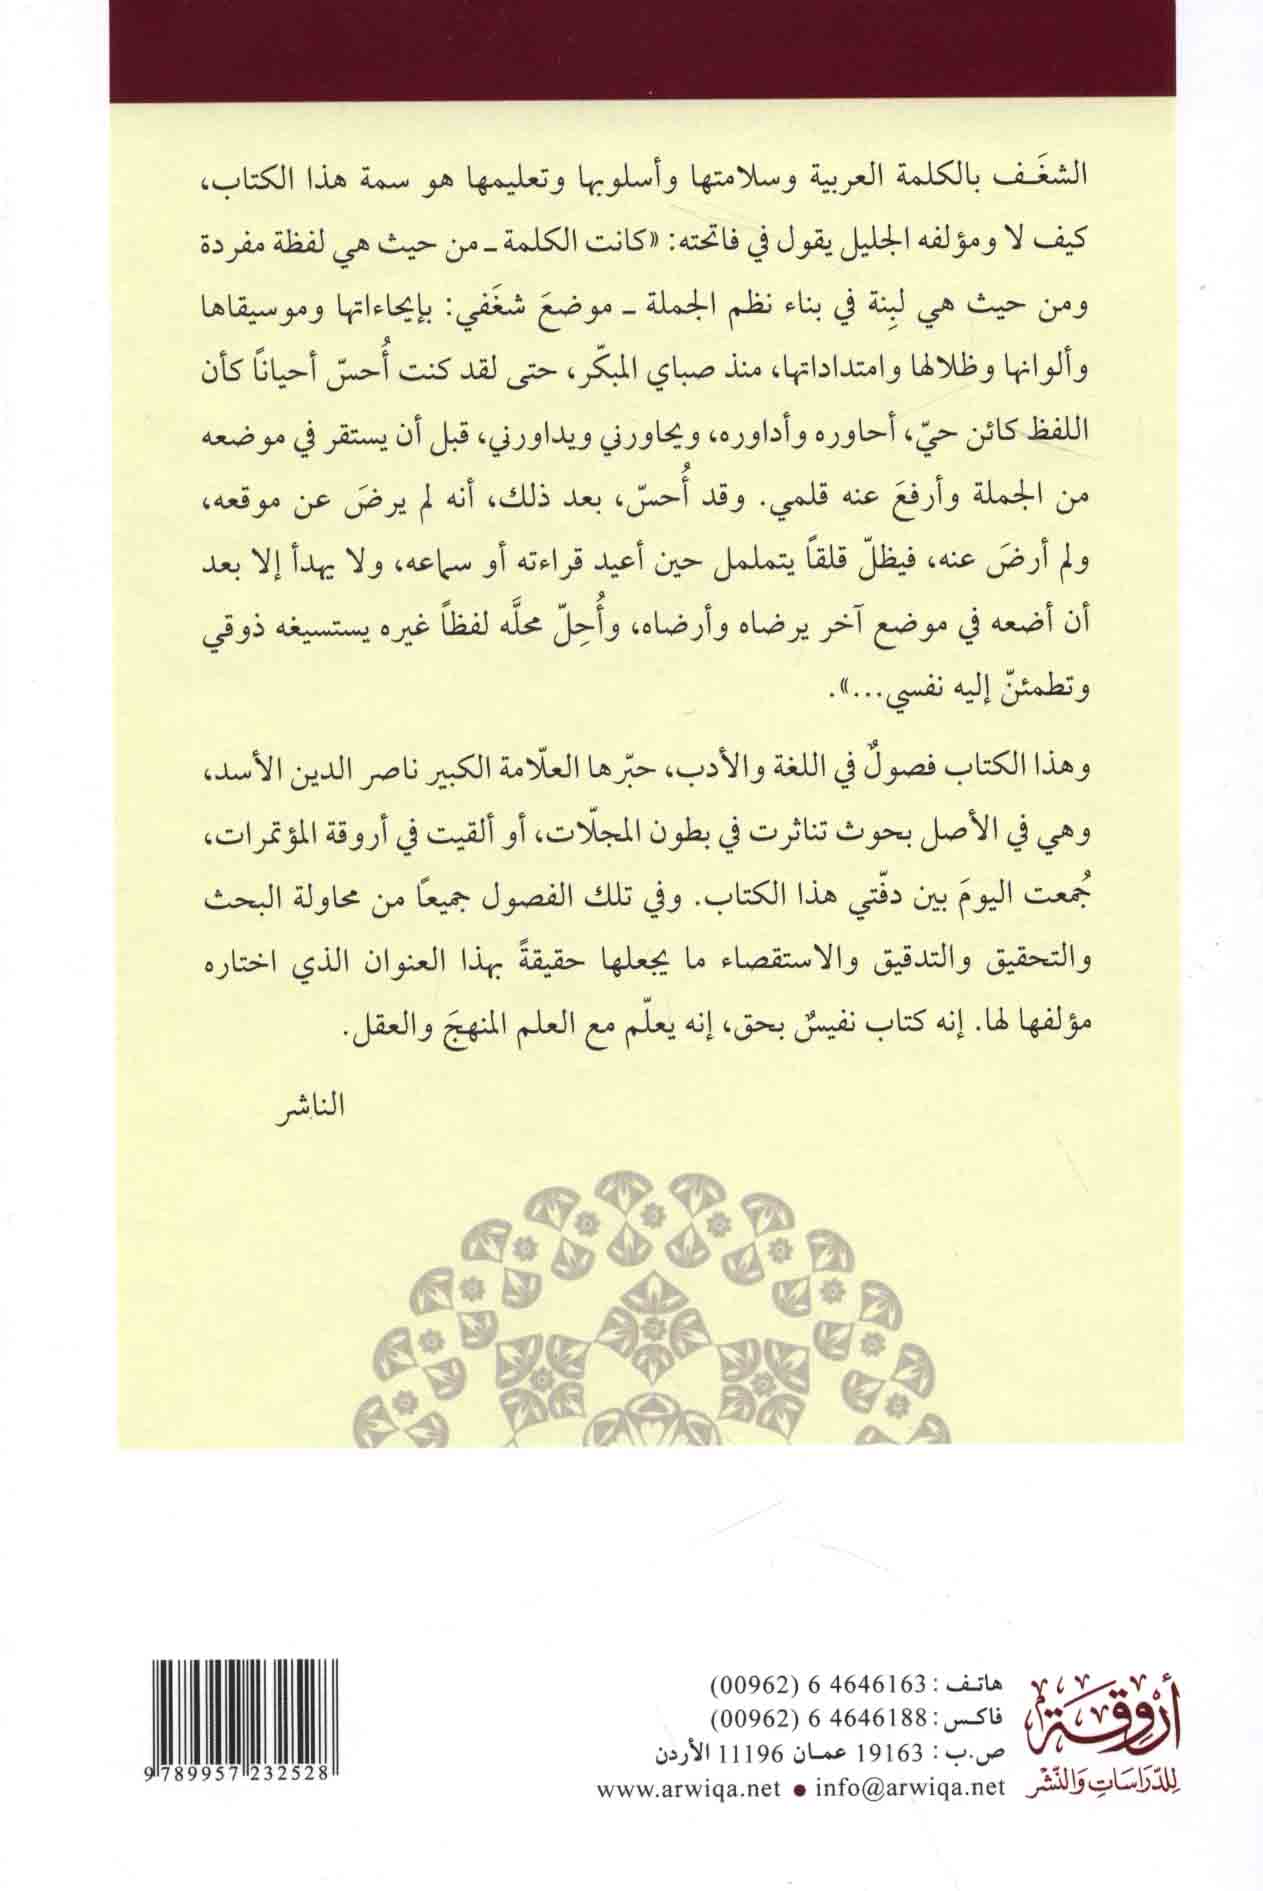 الشغَـف بالكلمة العربية وسلامتها وأسلوبها وتعليمها هو سمة هذا الكتاب،
كيف لا ومؤلفه الجليل يقول في فاتحته: «كانت الكلمة ـ من حيث هي لفظة مفردة
ومن حيث هي لبِنة في بناء نظم الجملة ـ موضعَ شغَفي: بإيحاءاتها وموسيقاها
وألوانها وظلالها وامتداداتها، منذ صباي المبكّر، حتى لقد كنت أُحسّ أحياناً كأن
اللفظ كائن حيّ، أحاوره وأداوره، ويحاورني ويداورني، قبل أن يستقر في موضعه
من الجملة وأرفعَ عنه قلمي. وقد أُحسّ، بعد ذلك، أنه لم يرضَ عن موقعه،
ولم أرضَ عنه، فيظلّ قلقاً يتململ حين أعيد قراءته أو سماعه، ولا يهدأ إلا بعد
أن أضعه في موضع آخر يرضاه وأرضاه، وأُحِلّ محلَّه لفظاً غيره يستسيغه ذوقي
وتطمئنّ إليه نفسي...».
وهذا الكتاب فصولٌ في اللغة والأدب، حبّرها العلّامة الكبير ناصر الدين الأسد،
وهي في الأصل بحوث تناثرت في بطون المجلّات، أو ألقيت في أروقة المؤتمرات،
جُمعت اليومَ بين دفّتي هذا الكتاب. وفي تلك الفصول جميعاً من محاولة البحث
والتحقيق والتدقيق والاستقصاء ما يجعلها حقيقةً بهذا العنوان الذي اختاره
مؤلفها لها. إنه كتاب نفيسٌ بحق، إنه يعلّم مع العلم المنهجَ والعقل.
الناشر
أروقة
للدّراسات والنّشر
هاتـف : 4646163 6 (00962)
فاكـس : 4646188 6 (00962)
ص.ب : 19163 عمـان 11196 الأردن
www.arwiqa.net ● info@arwiqa.net
9 789957 232528